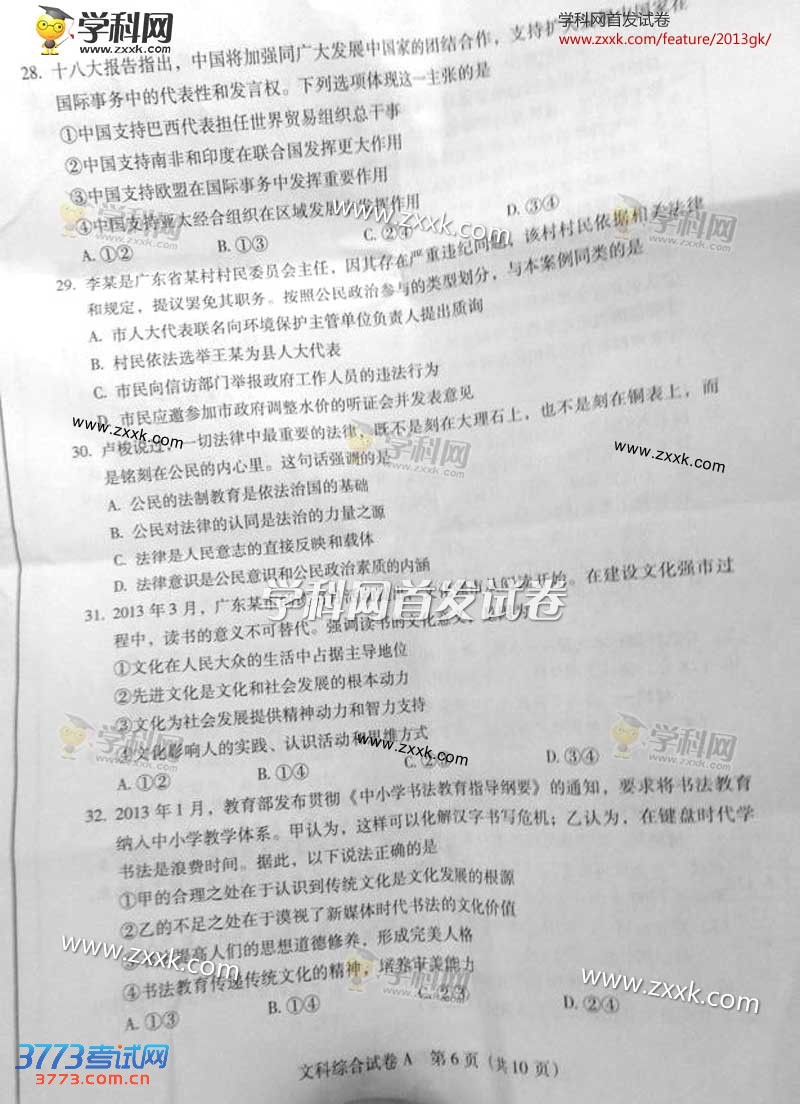 学科网
www.zxxk.com
学科网首发试卷
www.zxxk.com/feature/2013gk/
28. 十八大报告指出，中国将加强同广大发展中国家的团结合作，支持扩大
国际事务中的代表性和发言权。下列选项体现这一主张的是
①中国支持巴西代表担任世界贸易组织总干事
②中国支持南非和印度在联合国发挥更大作用
③中国支持欧盟在国际事务中发挥重要作用
④中国支持亚太经合组织在区域发展中发挥作用
A. ①② B. ①③ C. ②④ D. ③④
29. 李某是广东省某村村民委员会主任，因其存在严重违纪问题，该村村民依据相关法律
和规定，提议罢免其职务。按照公民政治参与的类型划分，与本案例同类的是
A. 市人大代表联名向环境保护主管单位负责人提出质询
B. 村民依法选举王某为县人大代表
C. 市民向信访部门举报政府工作人员的违法行为
D. 市民应邀参加市政府调整水价的听证会并发表意见
30. 卢梭说过，一切法律中最重要的法律，既不是刻在大理石上，也不是刻在铜表上，而
是铭刻在公民的内心里。这句话强调的是
A. 公民的法制教育是依法治国的基础
B. 公民对法律的认同是法治的力量之源
C. 法律是人民意志的直接反映和载体
D. 法律意识是公民意识和公民政治素质的内涵
31. 2013 年 3 月，广东某 开始。在建设文化强市过
程中，读书的意义不可替代。强调读书的文化意义
①文化在人民大众的生活中占据主导地位
②先进文化是文化和社会发展的根本动力
③文化为社会发展提供精神动力和智力支持
④文化影响人的实践、认识活动和思维方式
A. ①② B. ①③ C. ②③ D. ③④
32. 2013 年 1 月，教育部发布贯彻《中小学书法教育指导纲要》的通知，要求将书法教育
纳入中小学教学体系。甲认为，这样可以化解汉字书写危机；乙认为，在键盘时代学
书法是浪费时间。据此，以下说法正确的是
①甲的合理之处在于认识到传统文化是文化发展的根源
②乙的不足之处在于漠视了新媒体时代书法的文化价值
提高人们的思想道德修养，形成完美人格
④书法教育传递传统文化的精神，培养审美能力
A. ①③ B. ①④ C. ②③ D. ②④
文科综合试卷 A 第 6 页（共 10 页）
3773考试网
www.3773.com.cn